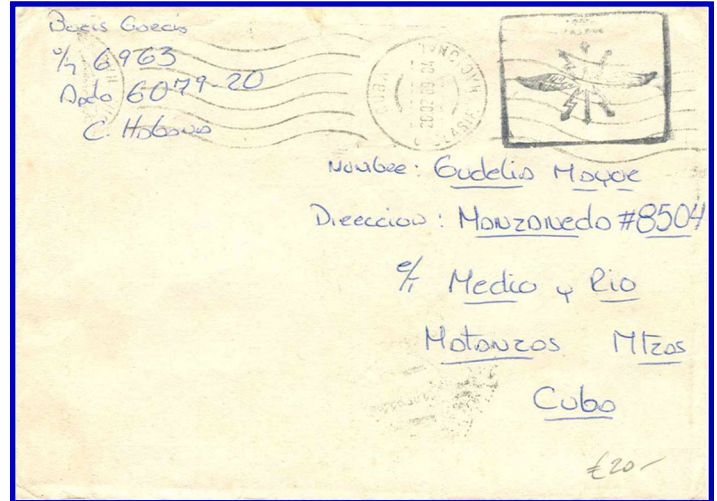 Boris Garcia
u/m 6963
Apdo 6079-20
C. Habana
CUBA
Nombre: Eudelia Mayor
Direccion: Manzanedo #8504
e/ Medio y Rio
Matanzas Mtzas
Cuba
£20-